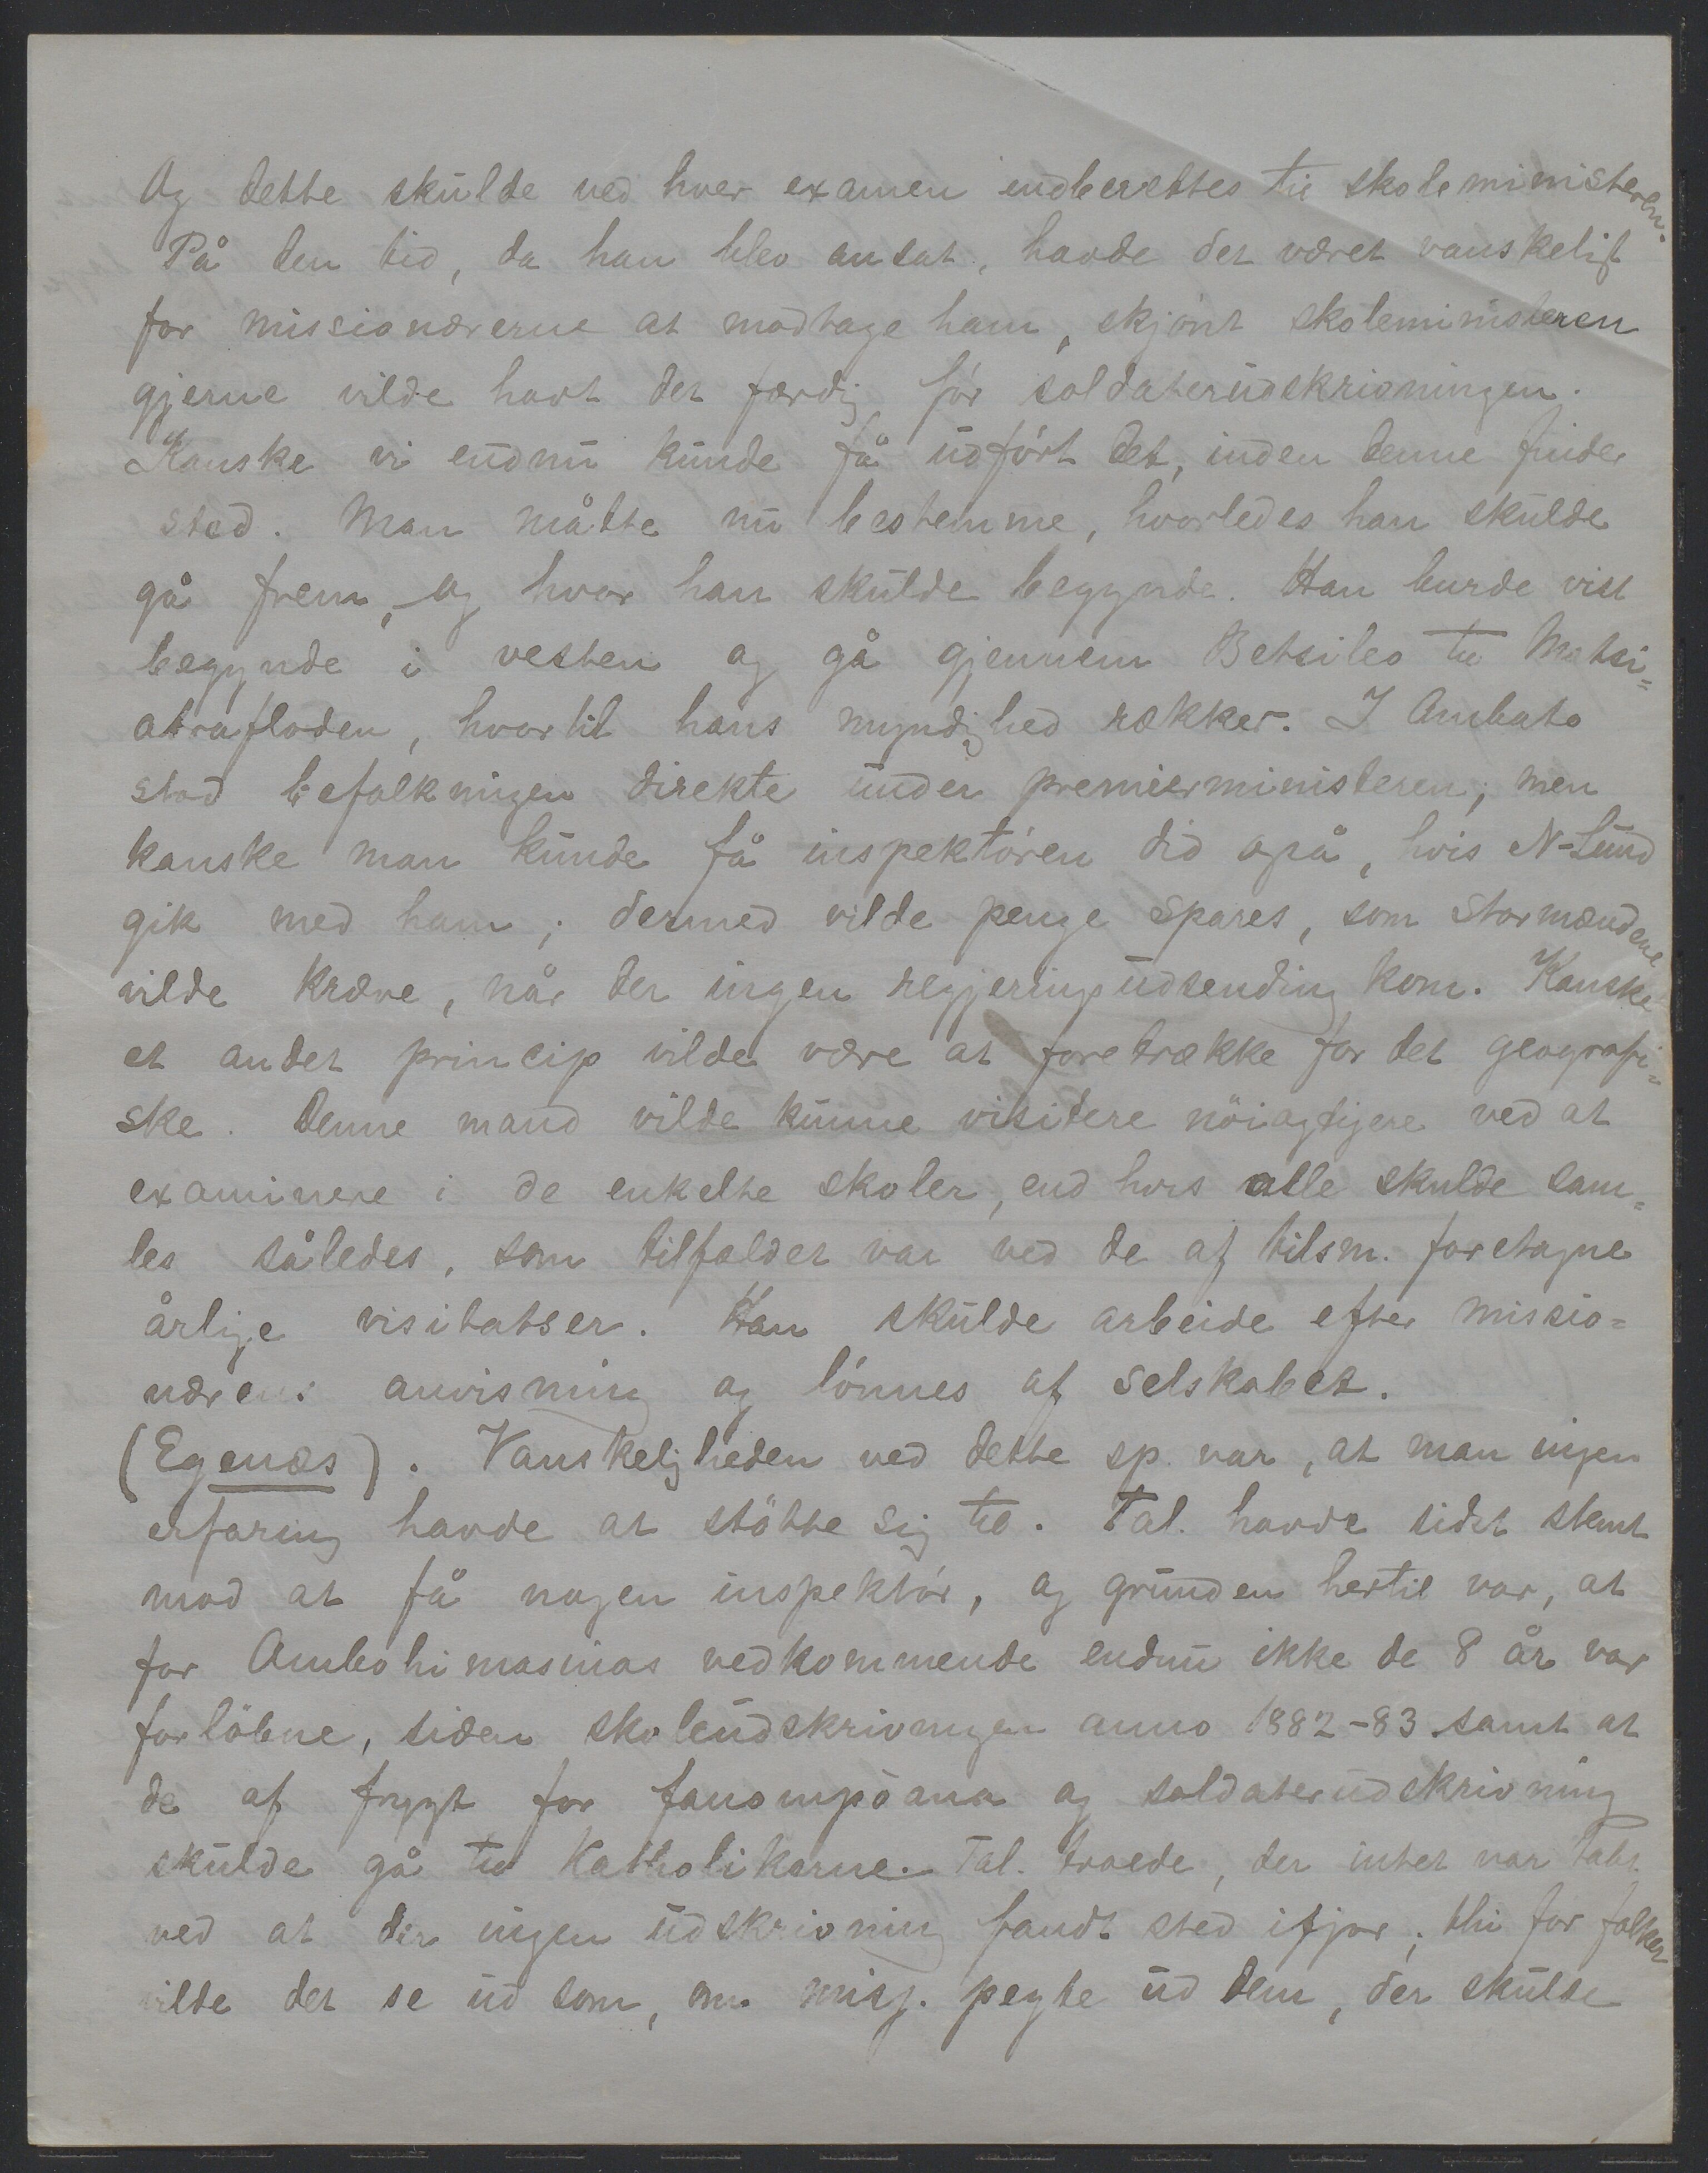 Og dette skulde ved hver examen indberettes til skoleministeren.
På den tid, da han blev ansat, havde det været vanskeligt
for missionærerne at modtage ham, skjønt skoleministeren
gjerne vilde havt det færdig før soldaterudskrivningen.
Kanske vi endnu kunde få udført det, inden denne finder
sted. Man måtte nu bestemme, hvorledes han skulde
gå frem, og hvor han skulde begynde. Han burde vist
begynde i vesten og gå gjennem Betsileo til Matsi=
atrafloden, hvortil hans myndighed rækker. I Ambato
stod befolkningen direkte under premierministeren; men
kanske man kunde få inspektøren did også, hvis N-Lund
gik med ham; dermed vilde penge spares, som stormændene
vilde kræve, når der ingen regjeringsudsending kom. Kanske
et andet princip vilde være at foretrække for det geografi=
ske. Denne mand vilde kunne visitere nöiagtigere ved at
examinere i de enkelte skoler, end hvis alle skulde sam=
les således, som tilfældet var ved de af tilsm. foretagne
årlige visitatser. Han skulde arbeide efter missio=
nærens anvisning og lønnes af selskabet.
(Egenæs). Vanskeligheden ved dette sp. var, at man ingen
erfaring havde at stötte sig til. Tal. havde sidst stemt
mod at få nogen inspektör, og grunden hertil var, at
for Ambohimasinas vedkommende endnu ikke de 8 år var
forløbne, siden skoleudskrivningen anno 1882-83 samt at
de af frygt for fanompoana og soldaterudskrivning
skulde gå til Katholikerne. Tal. troede, der intet var tabt
ved at der ingen udskrivning fandt sted ifjor; thi for folket
vilde det se ud som, om misj. pegte ud dem, der skulde